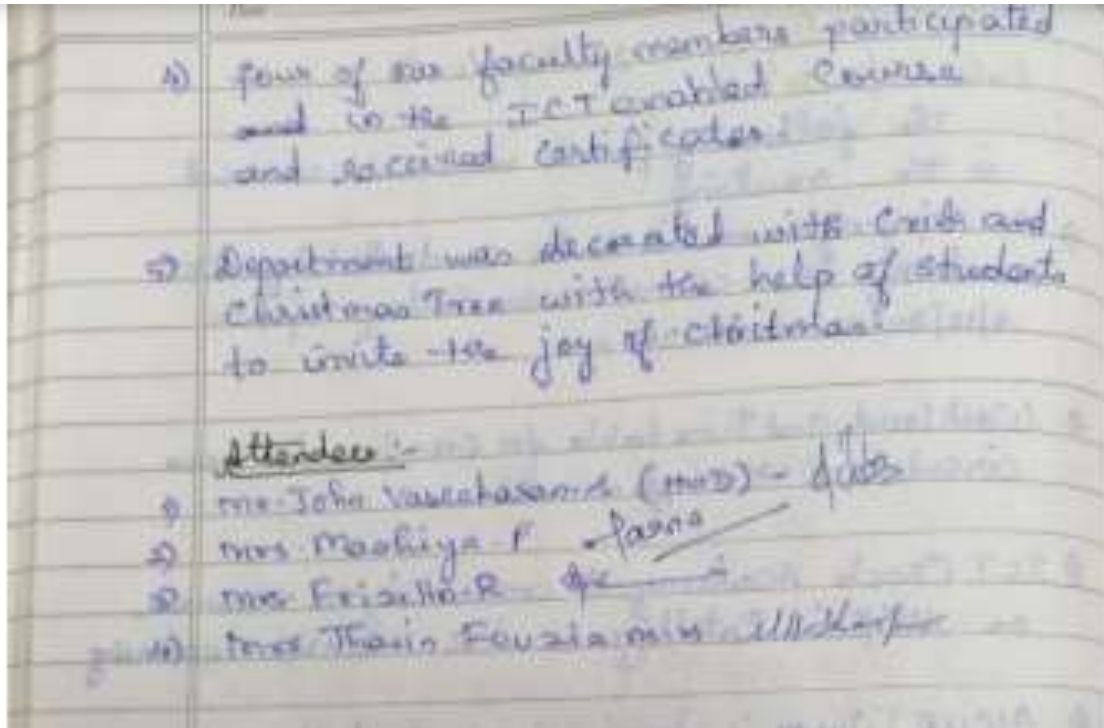 4) four of our faculty members participated
and in the ICT enabled Course
and received Certificates.
5) Department was decorated with Crib and
Christmas Tree with the help of students
to unite the joy of Chritmas.
Attendees :-
1) Mr. John (HOD) -
2) Mrs. Mashiya F
3) Mrs. R
4) Mrs.